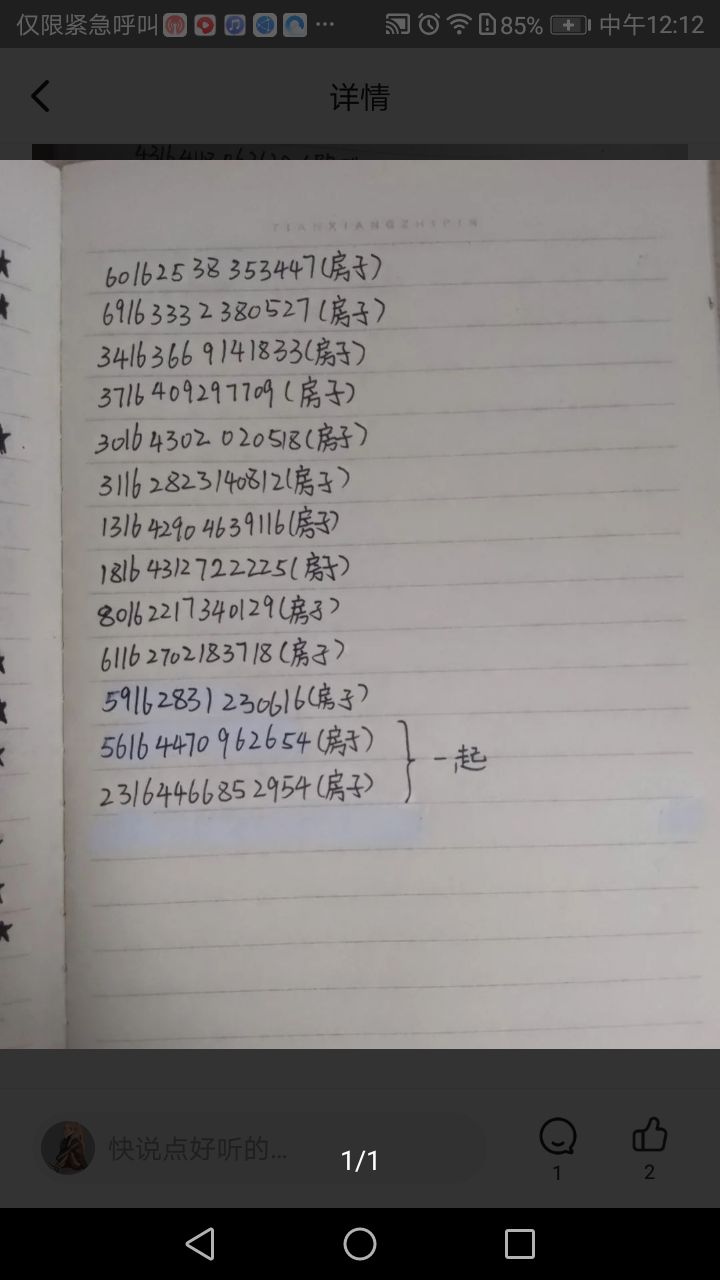 仅限紧急呼叫 ... 85% 中午12:12
详情
TIANXIANGZHIPIN
60162538353447(房子)
69163332380527(房子)
34163669141833(房子)
3716409297709(房子)
30164302020518(房子)
31162823140812(房子)
131642904639116(房子)
18164312722225(房子)
80162217340129(房子)
61162702183718(房子)
59162831230616(房子)
56164470962654(房子)
23164466852954(房子)
一起
快说点好听的...
1/1
1
2